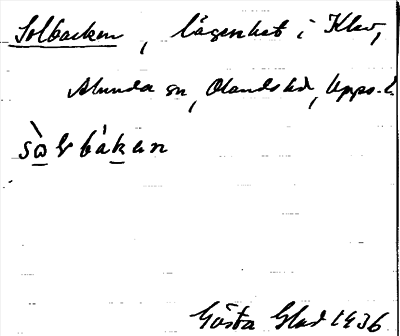 Solbacken, lägenhet i Klev,
Alunda sn, Olands hd, Upps. l.
sòlbákan
Gösta Glad 1936